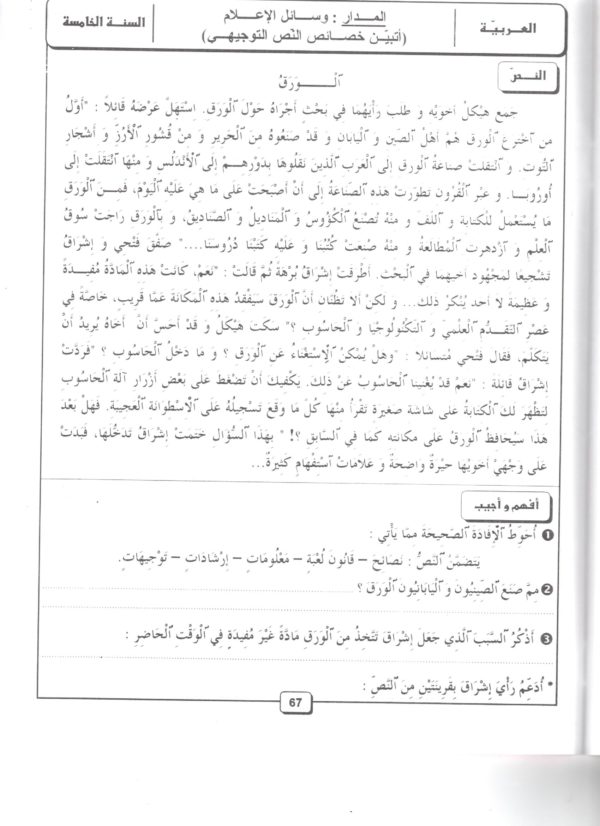 العربيّة
المدار : وسائل الإعلام
(أتبيّن خصائص النّص التوجيهي)
السنة الخامسة
النصّ
اَلْوَرَقُ
جمع هيْكلُ أخويْه و طلب رأيَهُما في بَحْثٍ أَجْرَاهُ حَوْلَ اَلْوَرَقِ. اِسْتَهَلَّ عَرْضَهُ قَائلاً : "أوّلُ
من اخترع اَلْورق هُمْ أهْلُ الصّين و اَلْيابان و قَدْ صَنعُوهُ منَ اَلْحَرير و مِنْ قُشُور اَلْأَرُزِّ وَ أَشْجَارِ
التُّوت. و انتقلتْ صناعةُ اَلْورق إلى اَلْعرب اَلّذينَ نقلُوهَا بدَوْرهمْ إلَى اَلْأنْدَلُس وَ مِنْهَا انْتَقلَتْ إلَى
أُورُوبا. و عبْر اَلْقُرُون تطوّرتْ هذه الصّنَاعةُ إلى أَنْ أصْبَحَتْ عَلَى مَا هِيَ عَلَيْه اَلْيَوْمَ، فَمِنَ اَلْوَرَقِ
مَا يُسْتعْملُ للْكتابة و اللّف و منْهُ تُصْنَعُ اَلْكُؤُوسُ وَ اَلْمَناديلُ وَ الصَّناديقُ، و بآلْورَق رَاجَتْ سُوقُ
اَلْعلْم و اَزْدهرتْ اَلْمُطالعةُ و منْهُ صُنعتْ كُتُبُنَا وَ عَلَيْه كَتَبْنَا دُرُوسَنَا...." صَفّقَ فَتْحِي وَ إِشْرَاقُ
تَشْجيعًا لمَجْهُود أخيهما في اَلْبحْث. أطْرقتْ إشْراقُ بُرْهةً ثُمَّ قَالَتْ : "نَعَمْ، كانتْ هَذه اَلْمَادَّةُ مُفيدَةً
و عَظيمَةً لا أحد يُنْكرُ ذلك... و لكنْ ألا تظُنّان أنّ اَلْورَقَ سَيَفْقدُ هَذه اَلْمَكانَةَ عَمَّا قَريبٍ، خَاصَّةً في
عَصْر التَّقدُّم اَلْعلْمي و التكْنُولُوجْيا و اَلْحاسُوب ؟" سكت هيْكلُ و قَدْ أحَسَّ أنَّ أخَاهُ يُريدُ أنْ
يَتكلّمَ، فقال فتْحي مُتسائلا : "وهلْ يُمْكنُ اَلْاسْتغْناءُ عَن اَلْورق ؟ و مَا دخْلُ اَلْحَاسُوب ؟" فَرَدَّتْ
إشْراقُ قائلة : "نعمْ قدْ يُغْنينا اَلْحاسُوبُ عنْ ذلكَ. يَكْفيكَ أنْ تَضْغط عَلَى بَعْض أزْرَار آلَة اَلْحَاسُوب
لتَظْهَرَ لَكَ اَلْكتَابةُ علَى شاشة صَغيرة تَقْرأُ منْهَا كُلَّ مَا وَقَعَ تَسْجيلُهُ عَلَى اَلْأسْطوانَة اَلْعَجيبَة. فَهَلْ بَعْدَ
هَذا سَيُحَافظُ اَلْورقُ على مكانته كمَا في السّابق ؟! " بهَذَا السُّؤَال خَتَمَتْ إشْرَاقُ تَدخُّلَهَا، فَبَدَتْ
عَلَى وَجْهَيْ أخويْها حيْرةٌ واضحةٌ و علاماتُ اسْتفْهَامٍ كَثيرَةٌ...
أفهم و أجيب
❶ أُحَوِّطُ اَلْإِفَادَةَ اَلصَّحِيحَةَ مِمَّا يَأْتِي :
يَتَضَمَّنُ اَلنَّصُّ : نَصَائِحَ – قَانُونَ لُعْبَةٍ – مَعْلُومَاتٍ – إِرْشَادَاتٍ – تَوْجِيهَاتٍ.
❷ مِمَّ صَنَعَ اَلصِّينِيُّونَ وَ اَلْيَابَانِيُّونَ اَلْوَرَقَ ؟
❸ أَذْكُرُ اَلسَّبَبَ اَلَّذِي جَعَلَ إِشْرَاقَ تَتَّخِذُ مِنَ اَلْوَرَقِ مَادَّةً غَيْرَ مُفِيدَةٍ فِي اَلْوَقْتِ اَلْحَاضِرِ :
* أُدَعِّمُ رَأْيَ إِشْرَاقَ بِقَرِينَتَيْنِ مِنَ اَلنَّصِّ :
67